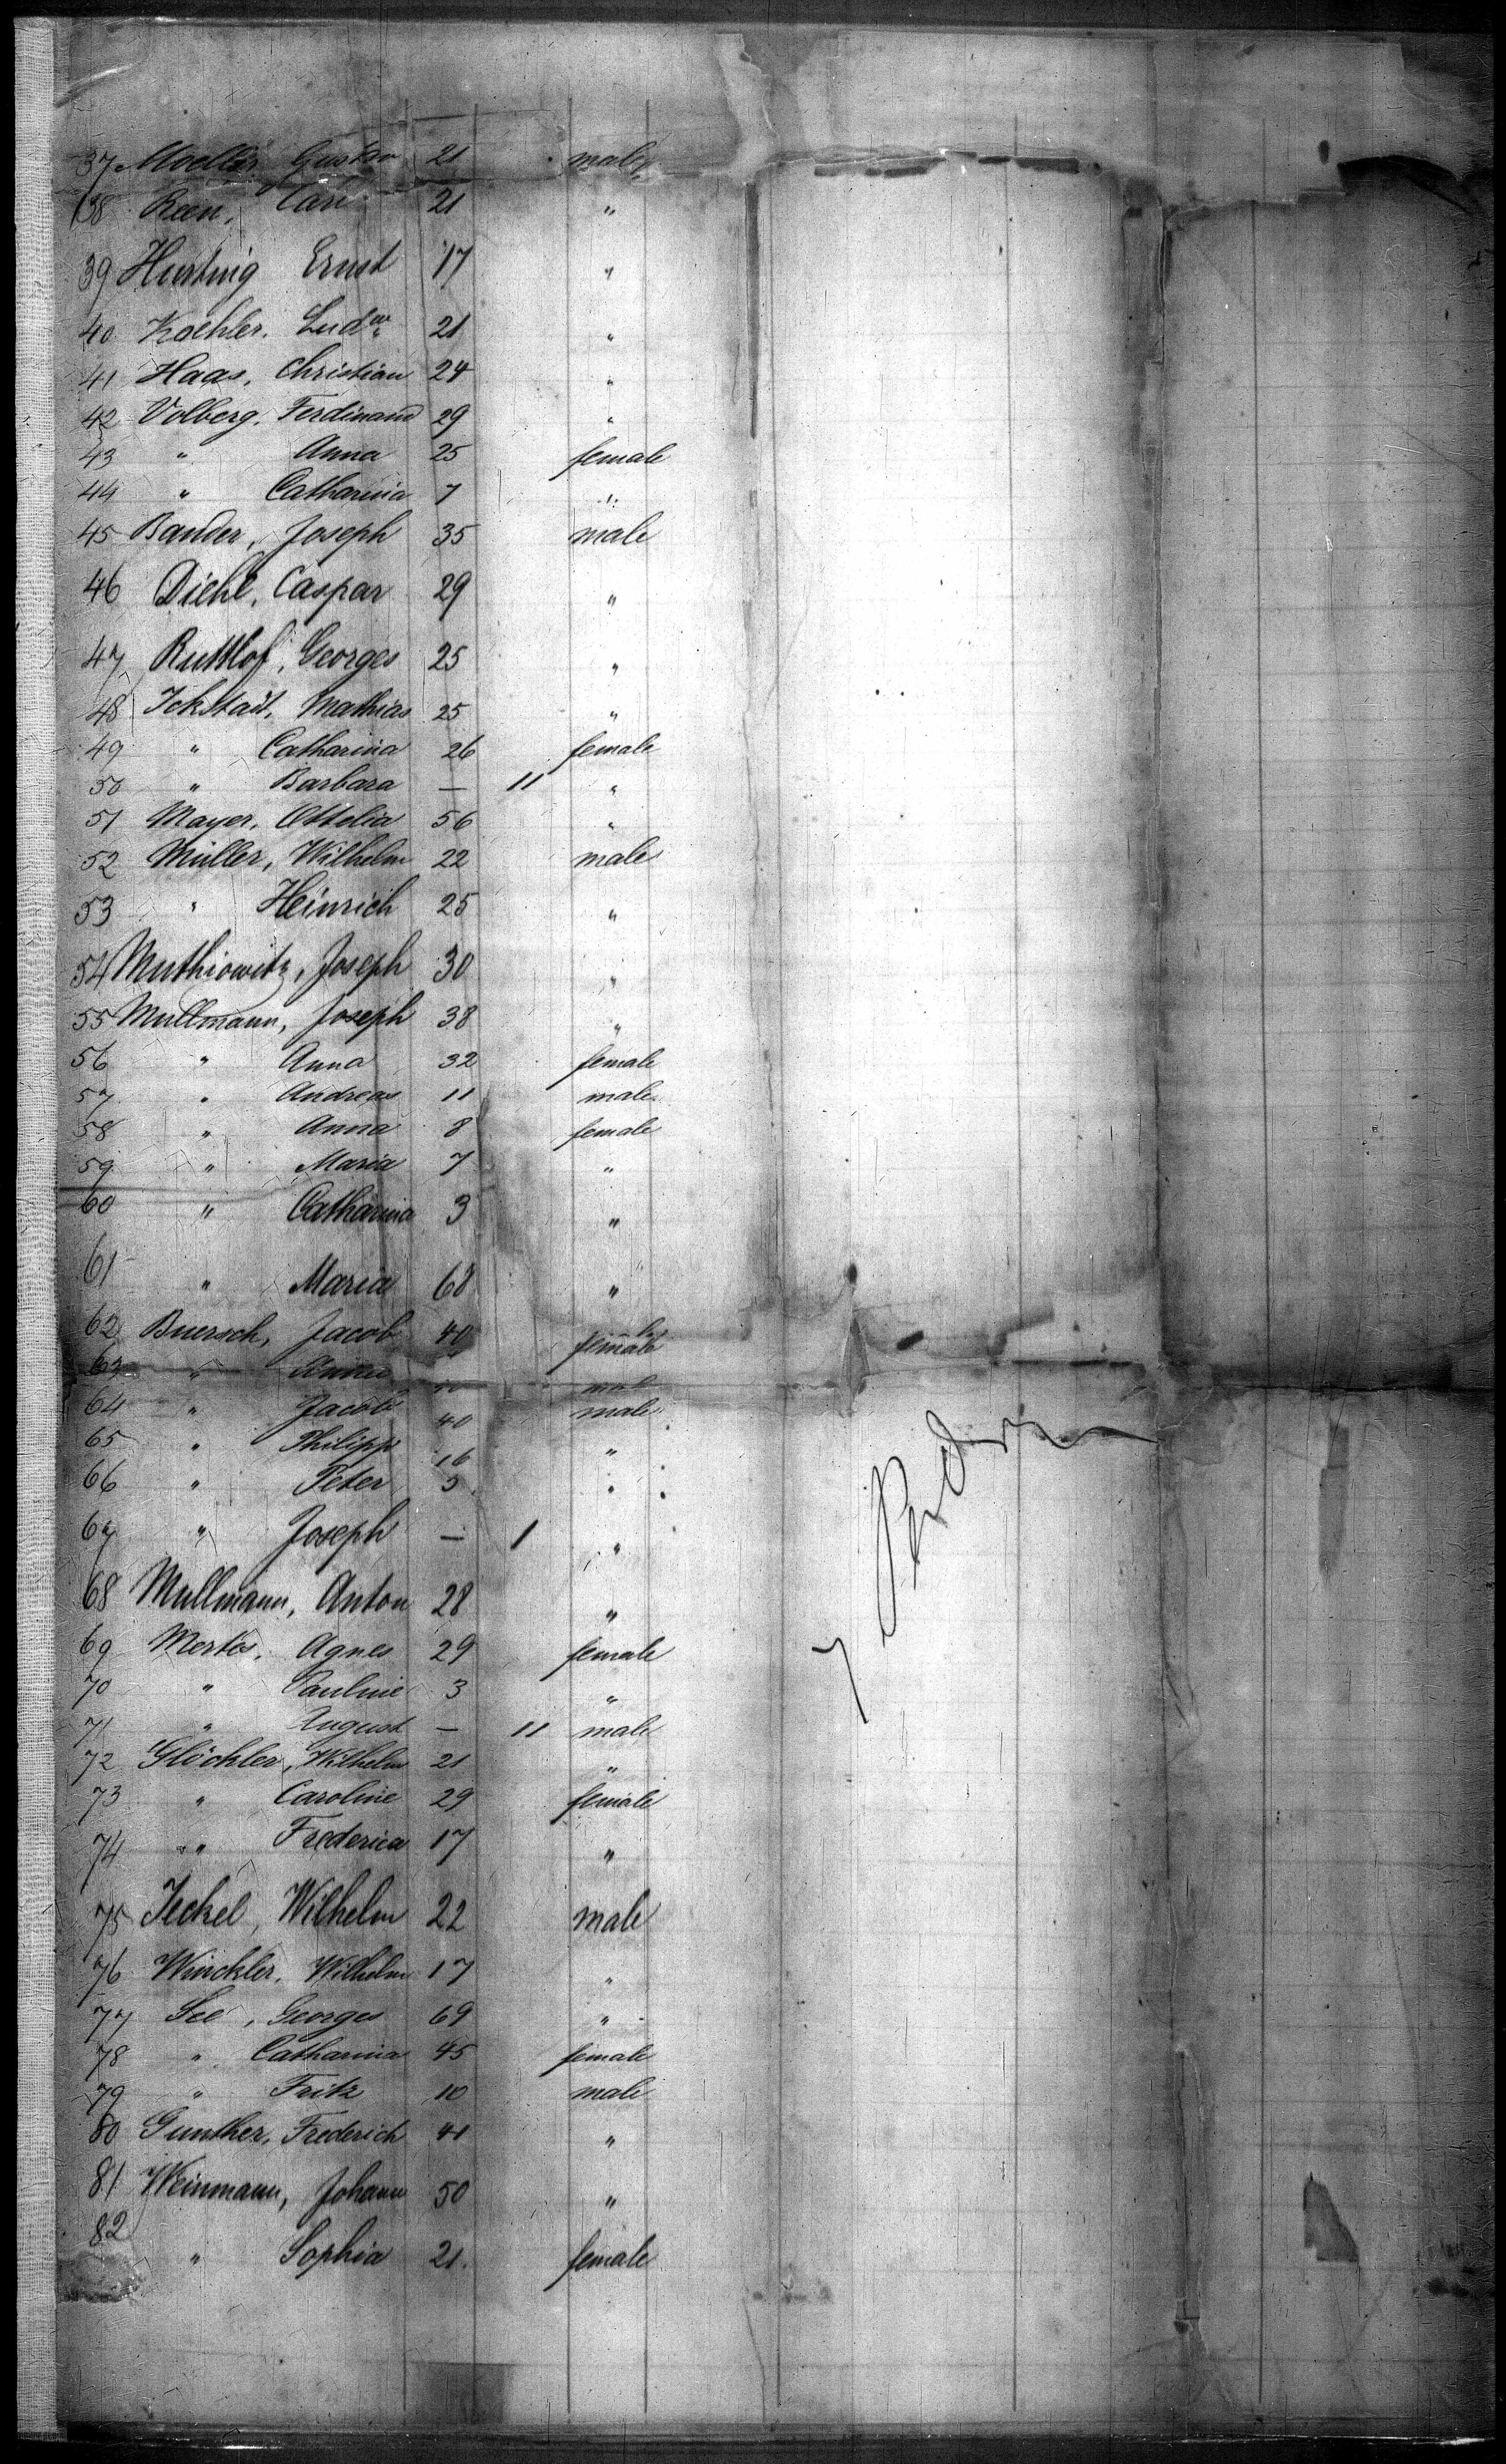 37 Moeller Gustav 21 male
38 Reen, Carl 21 "
39 Hurting Ernst 17 "
40 Koehler, Ludw 21 "
41 Haas, Christian 24 "
42 Volberg, Ferdinand 29 "
43 " Anna 25 female
44 " Catharina 7 "
45 Bander, Joseph 35 male
46 Diehl, Caspar 29 "
47 Ruttlof, Georges 25 "
48 Ickstadt, Mathias 25 "
49 " Catharina 26 female
50 " Barbara — 11 "
51 Mayer, Ottelia 56 "
52 Müller, Wilhelm 22 male
53 " Heinrich 25 "
54 Muthiowitz, Joseph 30 "
55 Mullmann, Joseph 38 "
56 " Anna 32 female
57 " Andreas 11 male
58 " Anna 8 female
59 " Maria 7 "
60 " Catharina 3 "
61 " Maria 68 "
62 Buersch, Jacob 40
63 " Anna female
64 " Jacob 40 male
65 " Philipp 16 "
66 " Peter 5 "
67 " Joseph — 1 "
68 Mullmann, Anton 28 "
69 Mertes, Agnes 29 female
70 " Pauline 3 "
71 " August — 11 male
72 Glöckler, Wilhelm 21 "
73 " Caroline 29 female
74 " Frederica 17 "
75 Jeckel, Wilhelm 22 male
76 Winckler, Wilhelm 17 "
77 See, Georges 69 "
78 " Catharina 45 female
79 " Fritz 10 male
80 Gunther, Frederich 41 "
81 Weinmann, Johann 50 "
82 " Sophia 21. female